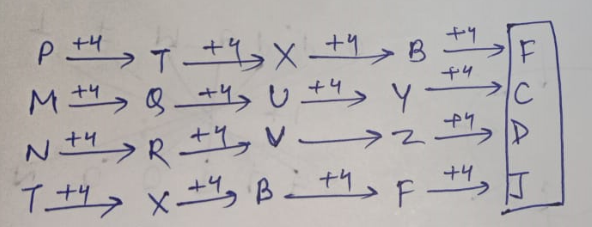 P +4 → T +4 → X +4 → B +4 → F
M +4 → Q +4 → U +4 → Y +4 → C
N +4 → R +4 → V → Z +4 → D
T +4 → X +4 → B +4 → F +4 → J